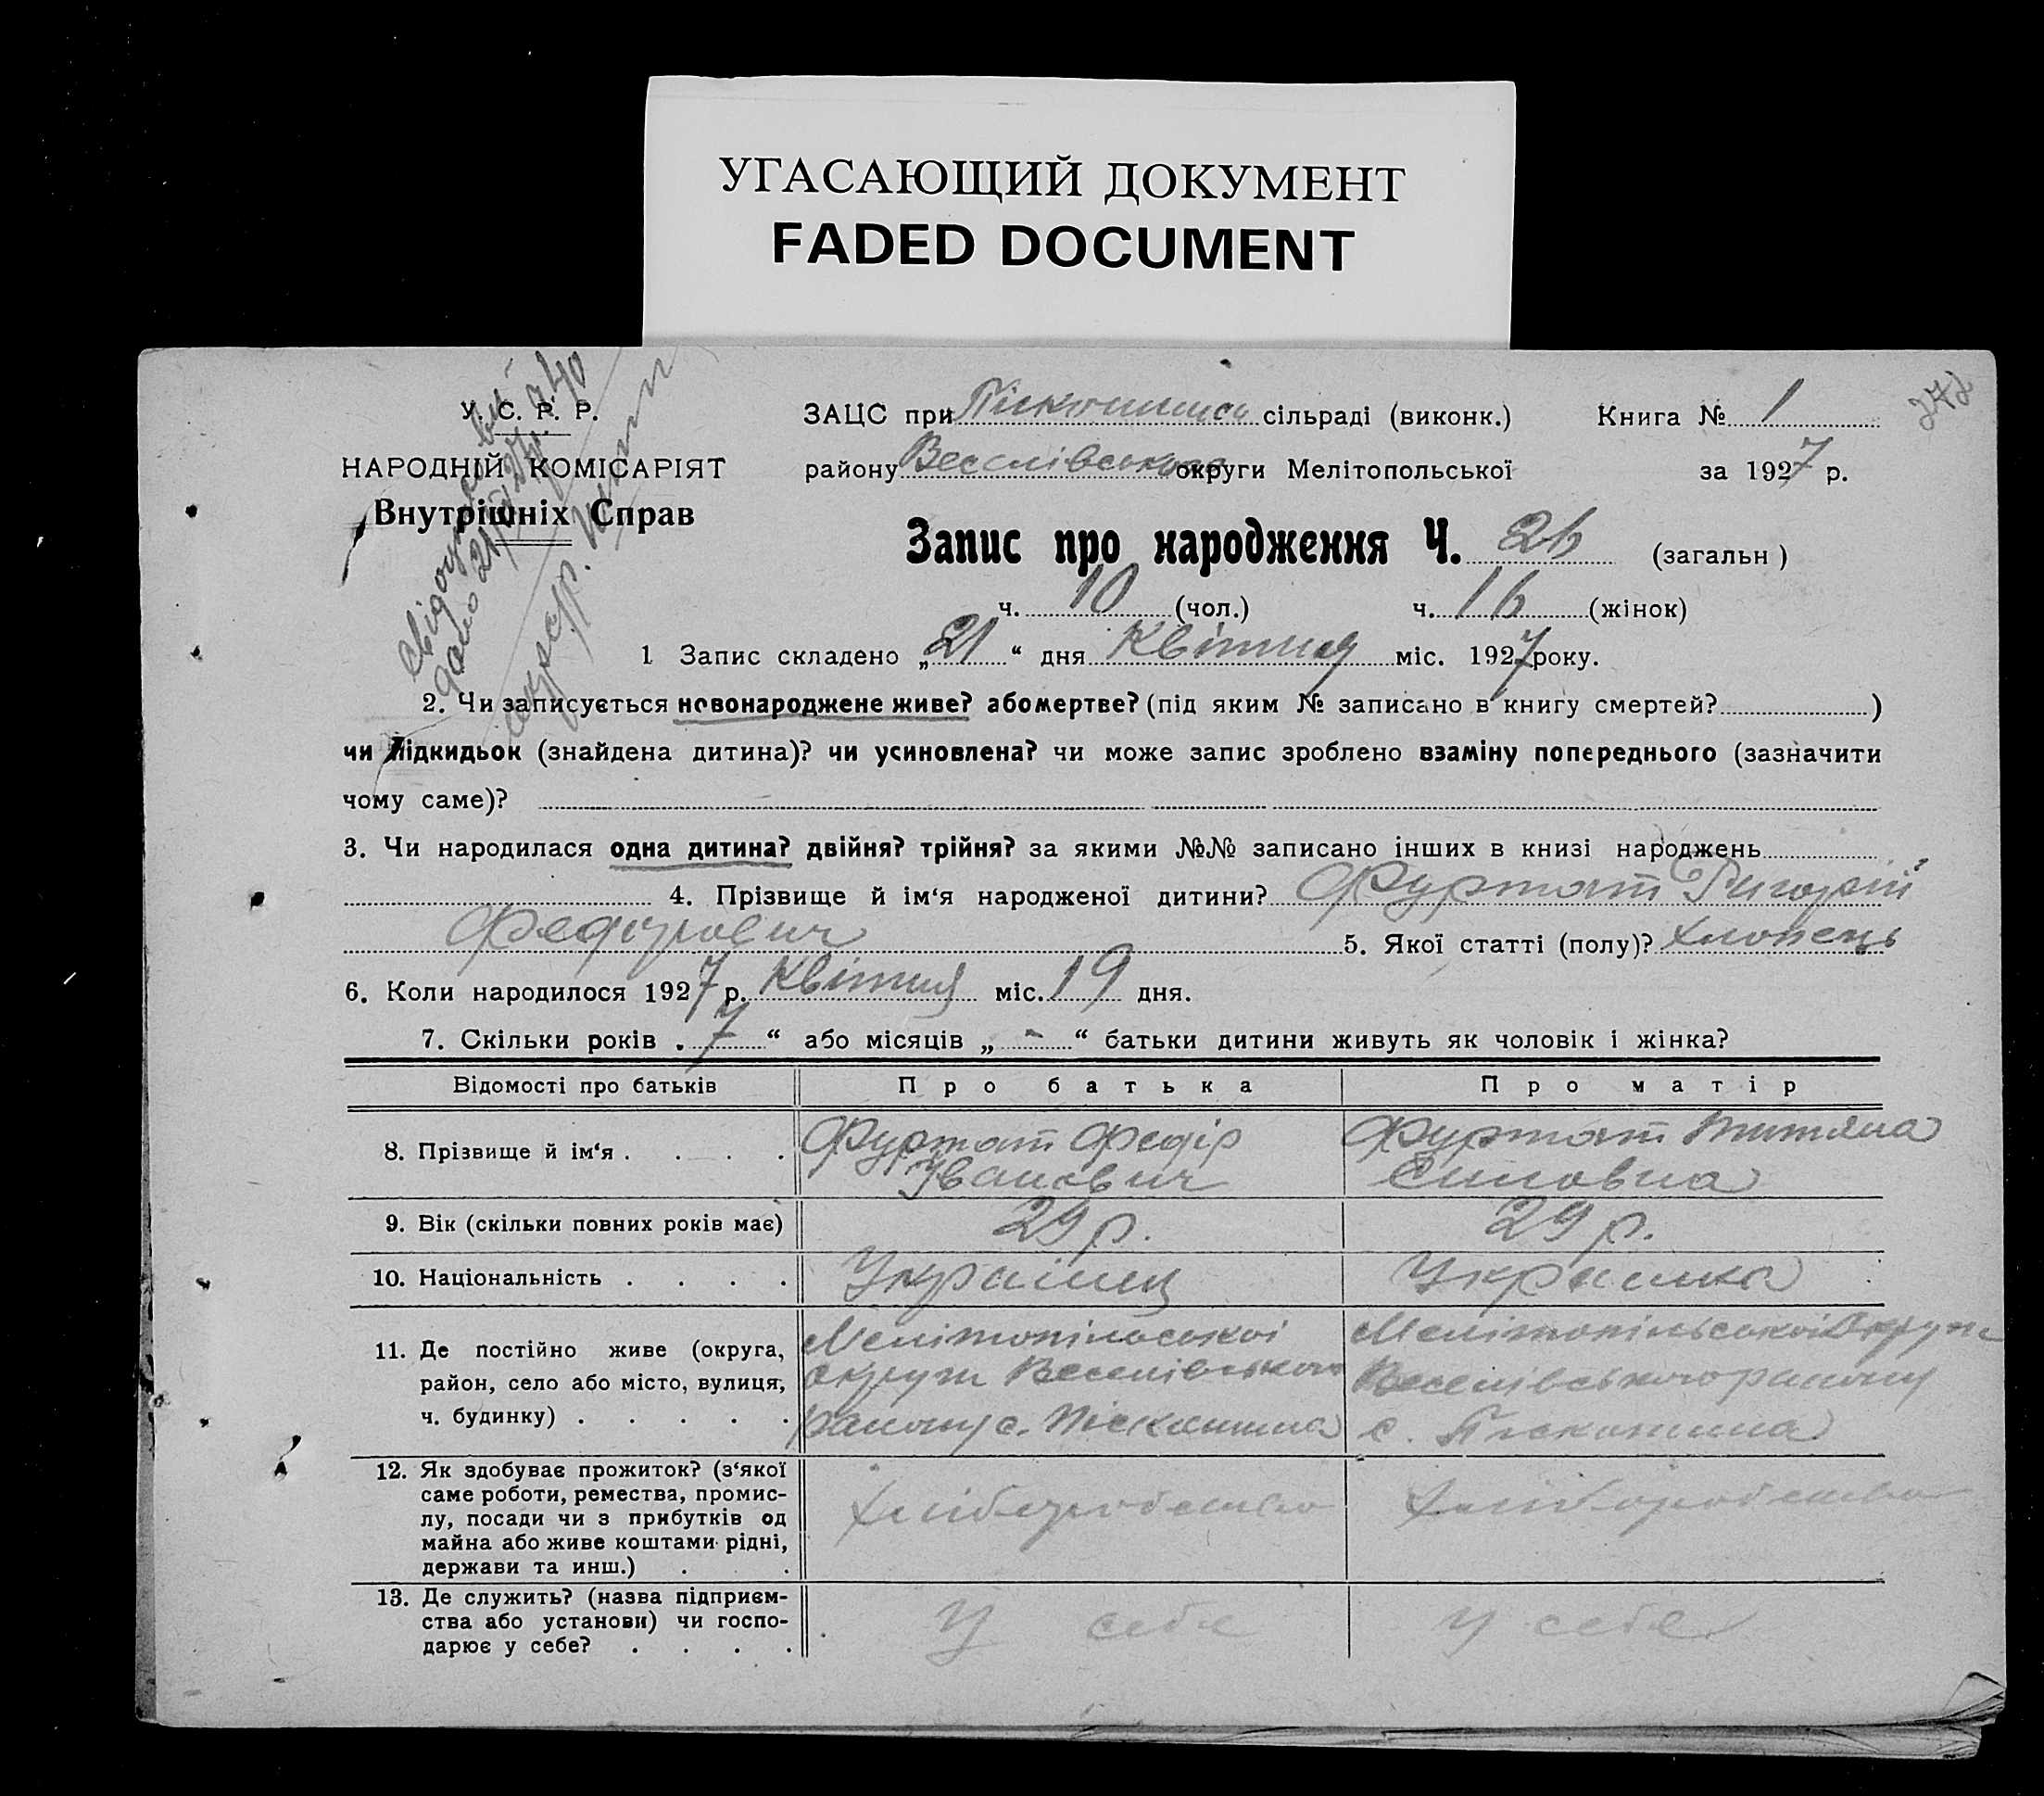 УГАСАЮЩИЙ ДОКУМЕНТ
FADED DOCUMENT
У. С. Р. Р.
НАРОДНІЙ КОМІСАРІЯТ
Внутрішніх Справ
ЗАЦС при сільраді (виконк.) Книга № 1
242
району Веселівського округи Мелітопольської за 1927 р.
Запис про народження Ч. 26 (загальн)
ч. 10 (чол.) ч. 16 (жінок)
1 Запис складено „21“ дня Квітня міс. 1927 року.
2. Чи записується новонароджене живе? або мертве? (під яким № записано в книгу смертей? )
чи підкидьок (знайдена дитина)? чи усиновлена? чи може запис зроблено взаміну попереднього (зазначити
чому саме)?
3. Чи народилася одна дитина? двійня? трійня? за якими №№ записано інших в книзі народжень
4. Прізвище й ім‘я народженої дитини? Фурмат Григорій
Федорович 5. Якої статті (полу)? Хлопець
6. Коли народилося 1927 р. Квітня міс. 19 дня.
7. Скільки років „7“ або місяців „-“ батьки дитини живуть як чоловік і жінка?
Відомості про батьків Про батька Про матір
8. Прізвище й ім‘я . . . . Фурмат Федір Фурмат
Іванович Силовна
9. Вік (скільки повних років має) 29 р. 29 р.
10. Національність . . . . Українец Украинка
11. Де постійно живе (округа, Мелітопільської Мелітопільської Округи
район, село або місто, вулиця, округи Веселівського Веселівського району
ч. будинку) . . . . . району с. Піскошина с. Піскошина
12. Як здобуває прожиток? (з‘якої
саме роботи, ремества, промис-
лу, посади чи з прибутків од Хліборобство Хліборобство
майна або живе коштами рідні,
держави та инш.) . .
13. Де служить? (назва підприєм-
ства або установи) чи госпо- У себе У себе
дарює у себе? . . . .